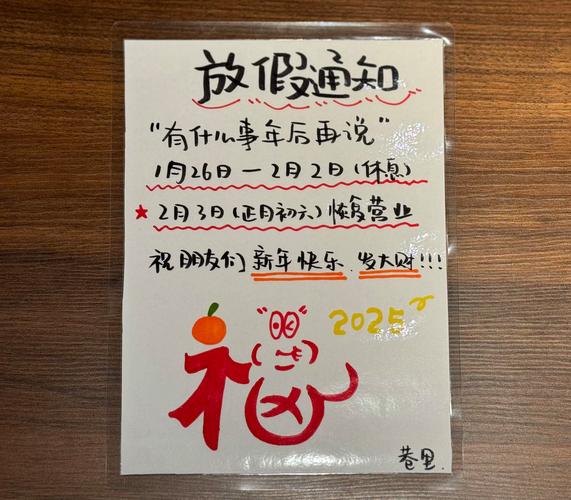 放假通知
"有什么事年后再说"
1月26日一2月2日(休息)
★2月3日(正月初六)恢复营业
祝朋友们新年快乐.发大财!!!
福
2025
巷里.